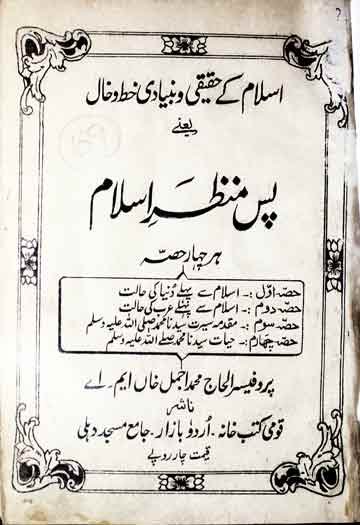 اسلام کے حقیقی و بنیادی خط و خال
یعنی
پس منظرِ اسلام
ہر چہار حصّہ
حصّہ اوّل :- اسلام سے پہلے دُنیا کی حالت
حصّہ دوم :- اسلام سے پہلے عرب کی حالت
حصّہ سوم :- مقدمہ سیرت سیدنا محمد صلی اللہ علیہ وسلم
حصّہ چہارم :- حیات سیدنا محمد صلے اللہ علیہ وسلم
پروفیسر الحاج محمد اجمل خاں ایم - اے
ناشر
قومی کتب خانہ - اُردو بازار - جامع مسجد دہلی
قیمت چار روپے